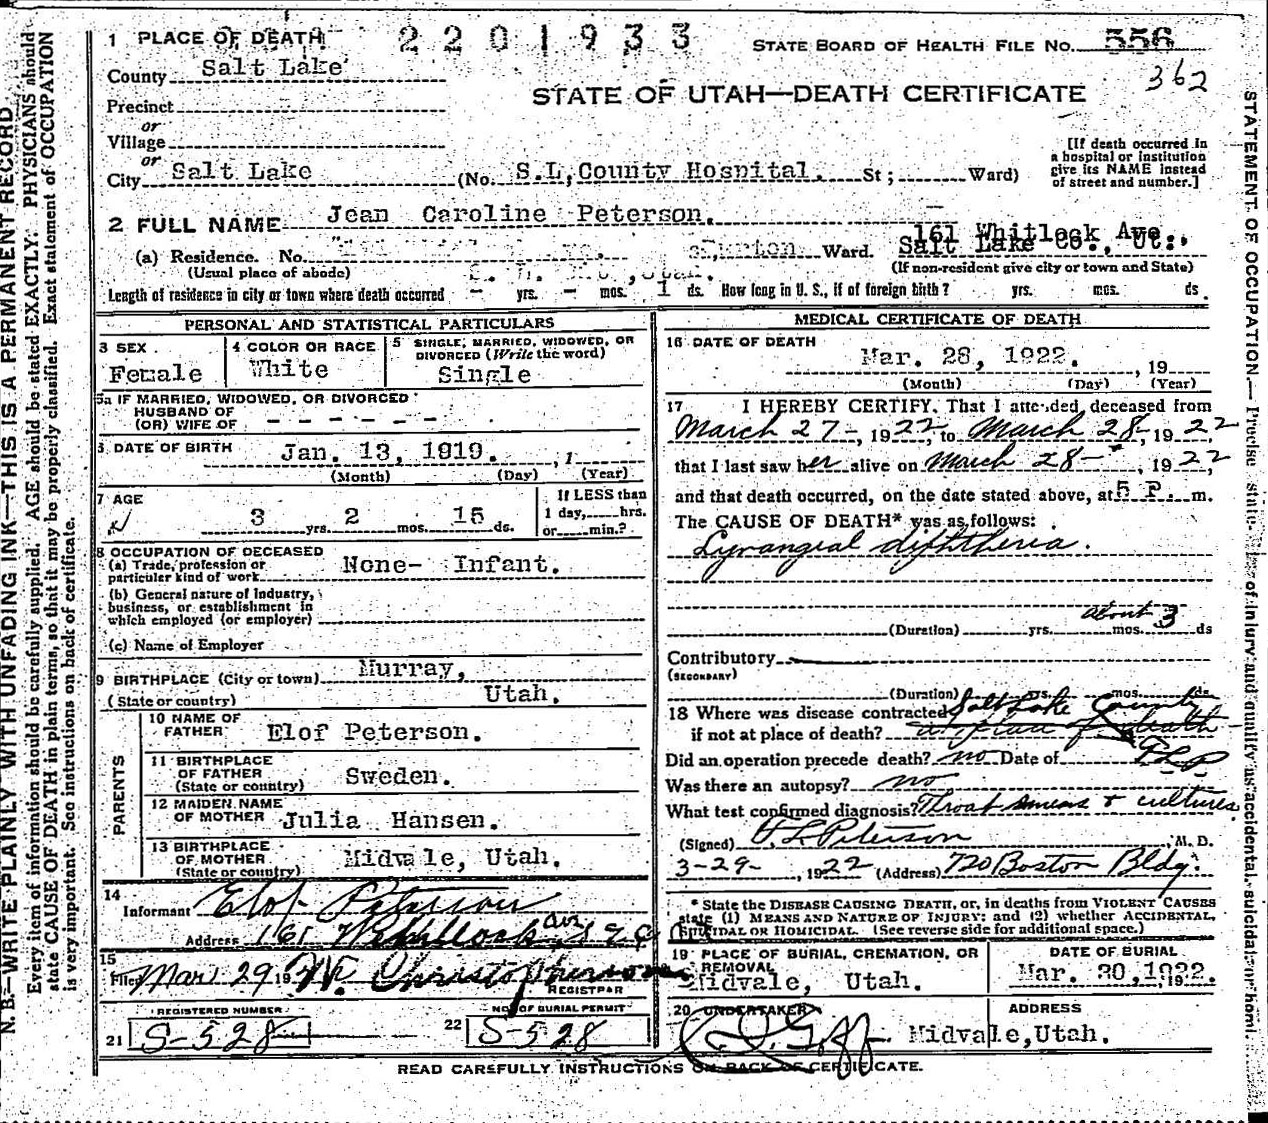 2201933
STATE BOARD OF HEALTH FILE NO. 556
362
1 PLACE OF DEATH
County Salt Lake
STATE OF UTAH—DEATH CERTIFICATE
Precinct
or
Village
or
City Salt Lake (No. S.L. County Hospital. St; Ward)
[If death occurred in a hospital or institution give its NAME instead of street and number.]
2 FULL NAME Jean Caroline Peterson.
161 Whitlock Ave.
(a) Residence. No. Ward. Salt Lake Co., Ut.
(Usual place of abode) (If non-resident give city or town and State)
Length of residence in city or town where death occurred - yrs. - mos. 1 ds. How long in U. S., if of foreign birth? yrs. mos. ds.
PERSONAL AND STATISTICAL PARTICULARS
3 SEX Female
4 COLOR OR RACE White
5 SINGLE, MARRIED, WIDOWED, OR DIVORCED (Write the word) Single
5a IF MARRIED, WIDOWED, OR DIVORCED
HUSBAND OF
(OR) WIFE OF - - - - -
6 DATE OF BIRTH Jan. 13, 1919. , 1
(Month) (Day) (Year)
7 AGE 3 yrs. 2 mos. 15 ds.
If LESS than
1 day, hrs.
or min.?
8 OCCUPATION OF DECEASED
(a) Trade, profession or
particular kind of work None- Infant.
(b) General nature of Industry,
business, or establishment in
which employed (or employer)
(c) Name of Employer
9 BIRTHPLACE (City or town) Murray,
(State or country) Utah.
PARENTS
10 NAME OF
FATHER Elof Peterson.
11 BIRTHPLACE
OF FATHER
(State or country) Sweden.
12 MAIDEN NAME
OF MOTHER Julia Hansen.
13 BIRTHPLACE
OF MOTHER
(State or country) Midvale, Utah.
14
Informant Elof Peterson
Address 161 Whitlock Ave
15
Filed Mar 29 19 W. Christopherson
REGISTRAR
REGISTERED NUMBER
21 S-528
NO. OF BURIAL PERMIT
22 S-528
MEDICAL CERTIFICATE OF DEATH
16 DATE OF DEATH
Mar. 28, 1922. , 19
(Month) (Day) (Year)
17 I HEREBY CERTIFY, That I attended deceased from
March 27-, 1922, to March 28-, 1922,
that I last saw her alive on March 28-, 1922,
and that death occurred, on the date stated above, at 5 P. m.
The CAUSE OF DEATH* was as follows:
Lyrangeal diphtheria.
about 3
(Duration) yrs. mos. ds
Contributory
(SECONDARY)
(Duration) yrs. mos. ds
18 Where was disease contracted Salt Lake County
if not at place of death? at place of death
Did an operation precede death? no Date of
Was there an autopsy? no
What test confirmed diagnosis? Throat smears & cultures.
(Signed) Peterson, M. D.
3-29-, 1922 (Address) 720 Boston Bldg.
* State the DISEASE CAUSING DEATH, or, in deaths from VIOLENT CAUSES
state (1) MEANS AND NATURE OF INJURY; and (2) whether ACCIDENTAL,
SUICIDAL OR HOMICIDAL. (See reverse side for additional space.)
19 PLACE OF BURIAL, CREMATION, OR
REMOVAL
Midvale, Utah.
DATE OF BURIAL
Mar. 30, 1922.
20 UNDERTAKER
ADDRESS
Midvale, Utah.
READ CAREFULLY INSTRUCTIONS ON BACK OF CERTIFICATE.
N. B.—WRITE PLAINLY WITH UNFADING INK—THIS IS A PERMANENT RECORD
Every item of information should be carefully supplied. AGE should be stated EXACTLY. PHYSICIANS should
state CAUSE OF DEATH in plain terms, so that it may be properly classified. Exact statement of OCCUPATION
is very important. See instructions on back of certificate.
STATEMENT OF OCCUPATION—Precise